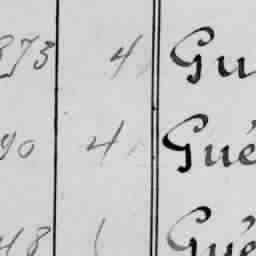 873 4 Gu
90 4 Gué
48 Gué